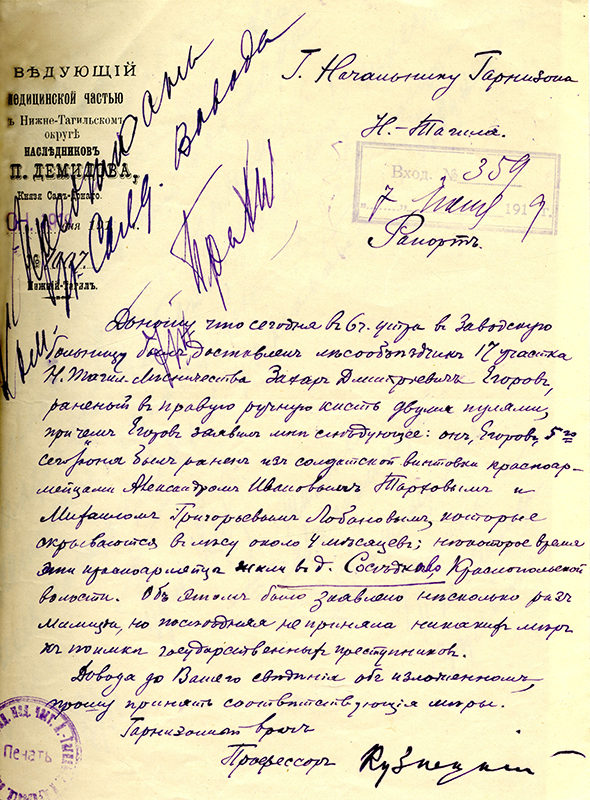 ВѢДУЮЩІЙ
Медицинской частью
въ Нижне-Тагильскомъ
округѣ
НАСЛѢДНИКОВЪ
П. П. ДЕМИДОВА,
Князя Санъ-Донато.
191
Нижній-Тагилъ.
Г. Начальнику Гарнизона
Н.-Тагила.
Вход. № 359
7 Іюня 1919 г.
Рапортъ.
Доношу что сегодня въ 6 ч. утра в Заводскую
больницу былъ доставленъ лѣсообъѣздчикъ 17 участка
Н. Тагил. Лѣсничества Захаръ Дмитріевичъ Егоровъ,
раненый в правую ручную кисть двумя пулями,
причемъ Егоровъ заявилъ мнѣ слѣдующее: онъ, Егоровъ, 5го
сего Іюня былъ раненъ изъ солдатской винтовки красноар-
мейцами Александромъ Ивановымъ Тарховымъ и
Михаиломъ Григорьевымъ Лобановымъ, которые
скрываются въ лѣсу около 4 мѣсяцевъ; нѣкоторое время
эти красноармейца жили въ д. Сосѣдково, Краснопольской
волости. Объ этомъ было заявлено нѣсколько разъ
милиціи, но последняя не приняла никакихъ мѣръ
къ поимкѣ государственныхъ преступниковъ.
Доводя до Вашего свѣдѣнія объ изложенномъ,
прошу принять соответствующія мѣры.
Гарнизонный врачъ
Профессоръ Кузнецкій
Печать